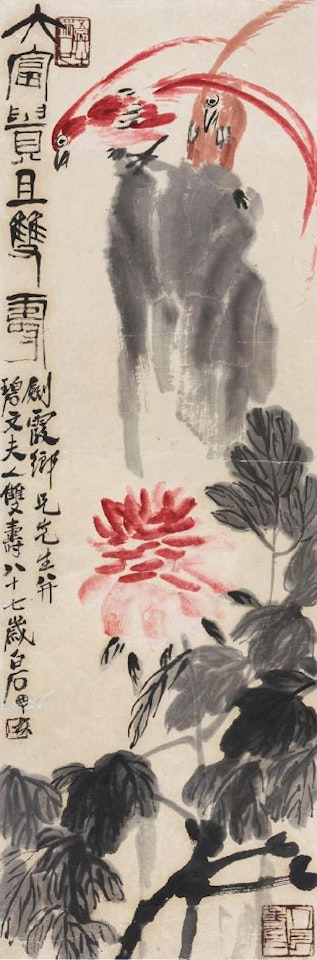 大富貴且雙壽
劍霞鄉兄先生并
碧文夫人雙壽八十七歲白石